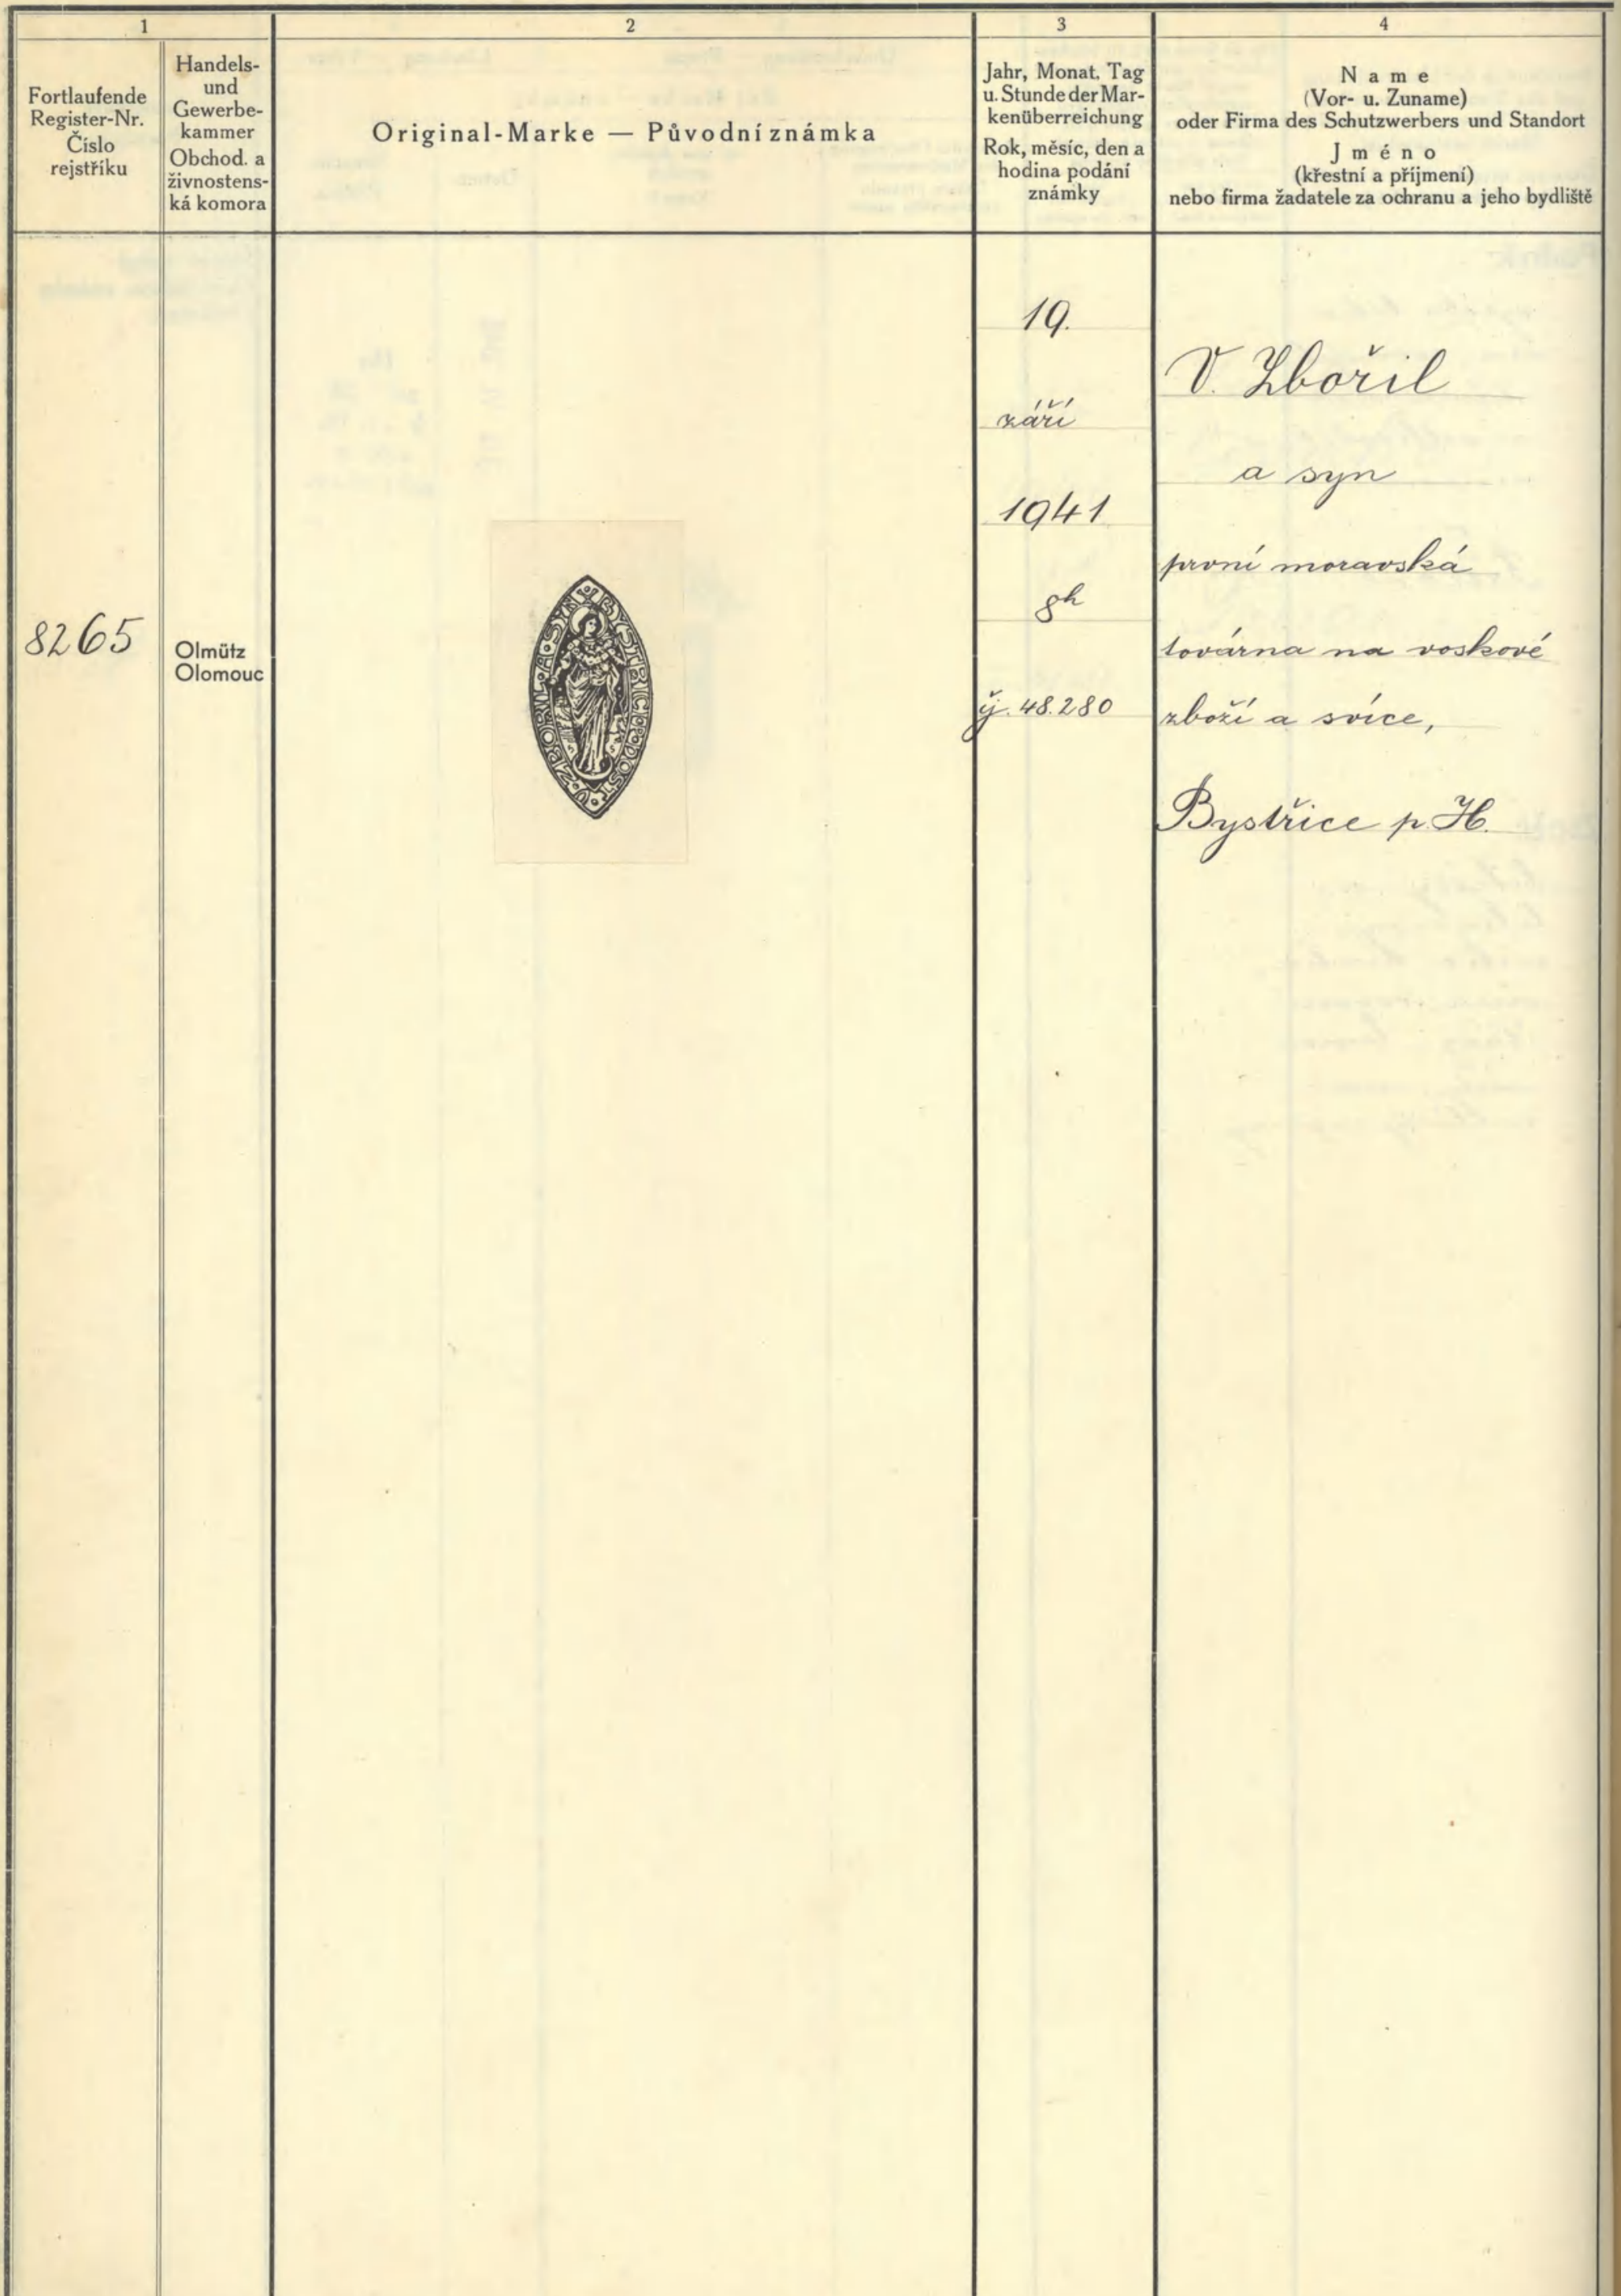 1
2
3
4
Fortlaufende
Register-Nr.
Číslo
rejstříku
Handels-
und
Gewerbe-
kammer
Obchod. a
živnostens-
ká komora
Original-Marke — Původní známka
Jahr, Monat, Tag
u. Stunde der Mar-
kenüberreichung
Rok, měsíc, den a
hodina podání
známky
Name
(Vor- u. Zuname)
oder Firma des Schutzwerbers und Standort
Jméno
(křestní a příjmení)
nebo firma žadatele za ochranu a jeho bydliště
8265
Olmütz
Olomouc
V. ZBOŘIL A SYN BYSTŘICE P. HOST.
19.
září
1941
8h
48.280
V. Zbořil
a syn
první moravská
továrna na voskové
zboží a svíce,
Bystřice p. H.